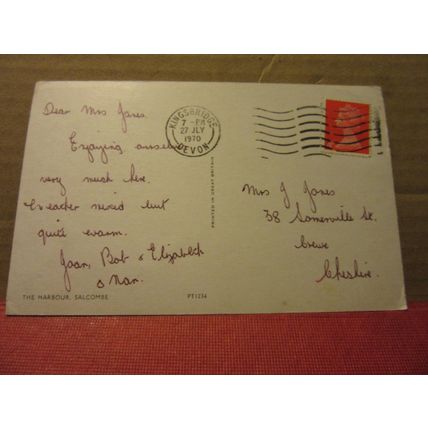 Dear Mrs Jones
Enjoying ourselves
very much here.
Weather mixed but
quite warm.
Joan, Bob & Elizabeth
& Nan.
THE HARBOUR, SALCOMBE
PT1234
PRINTED IN GREAT BRITAIN
KINGSBRIDGE
7 - PM
27 JLY
1970
DEVON
Mrs J Jones
38 Somerville St.
Crewe
Cheshire.